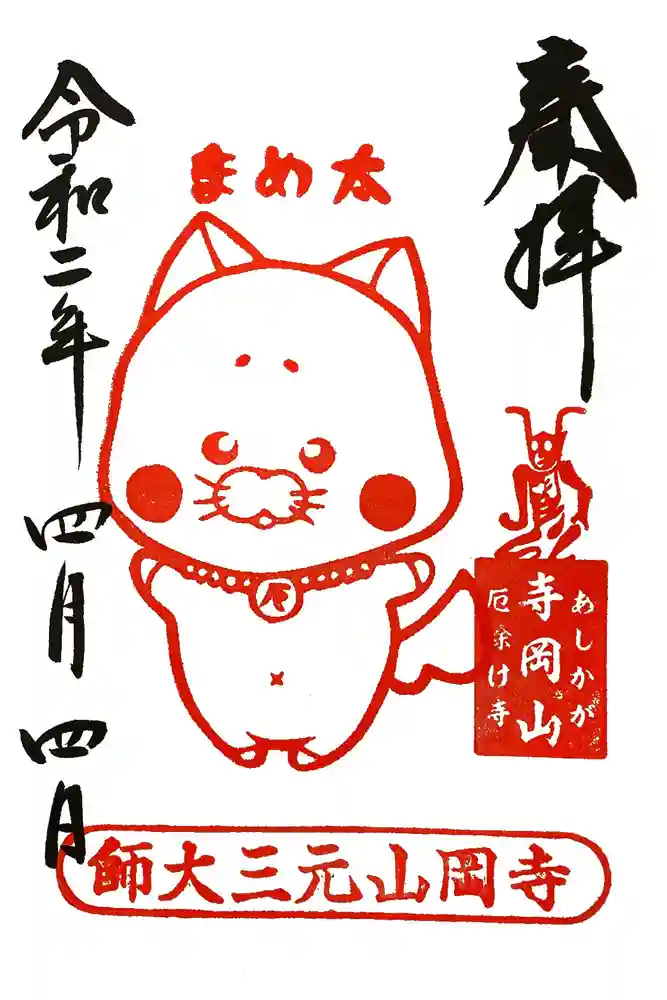 奉拝
まめ太
あしかが
寺岡山
厄除け寺
令和二年四月四日
寺岡山元三大師